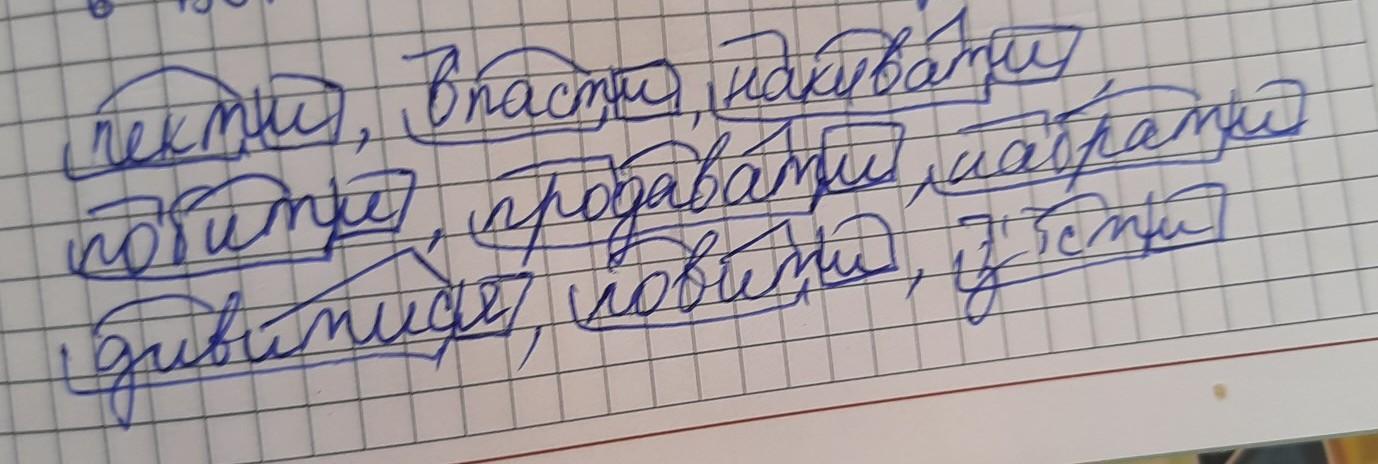 пекти, впасти, пакувати,
побити, продавати, набрати
дивитися, ловити, з'їсти